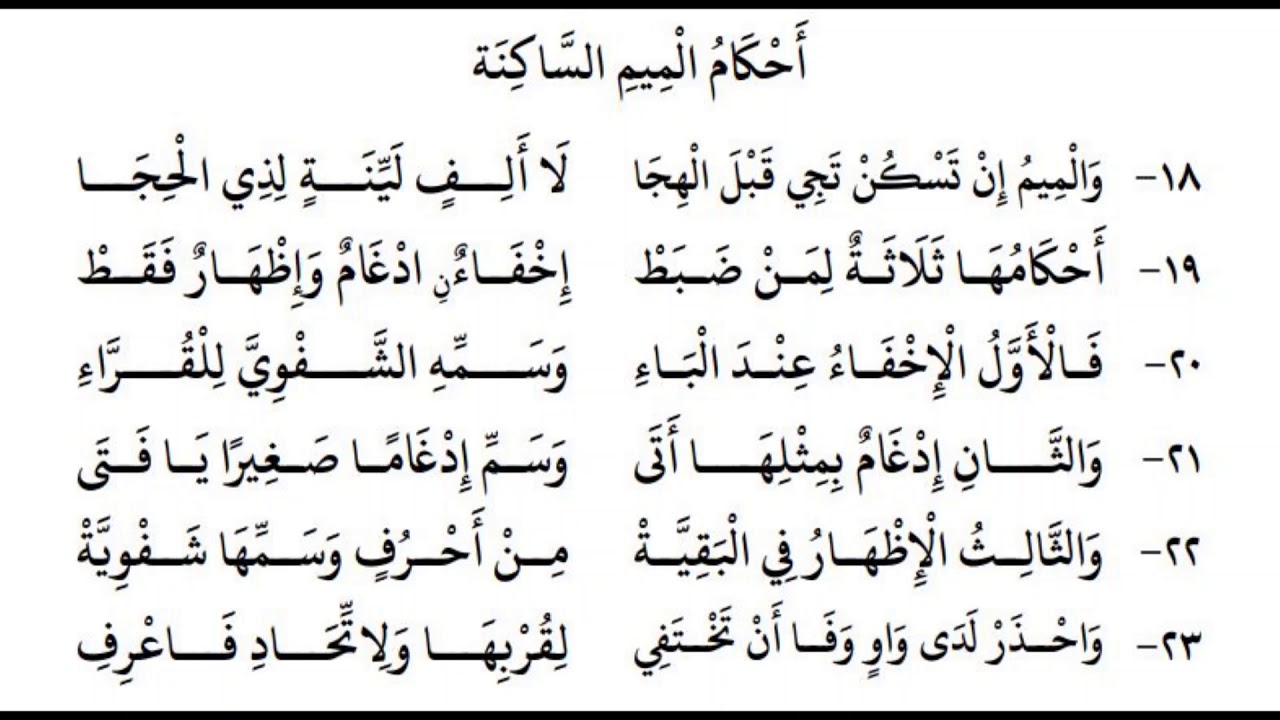 أَحْكَامُ الْمِيمِ السَّاكِنَة
١٨- وَالْمِيمُ إِنْ تَسْكُنْ تَجِي قَبْلَ الْهِجَا لَا أَلِفٍ لَيِّنَةٍ لِذِي الْحِجَا
١٩- أَحْكَامُهَا ثَلَاثَةٌ لِمَنْ ضَبَطْ إِخْفَاءٌنِ ادْغَامٌ وَإِظْهَارٌ فَقَطْ
٢٠- فَالْأَوَّلُ الْإِخْفَاءُ عِنْدَ الْبَاءِ وَسَمِّهِ الشَّفْوِيَّ لِلْقُرَّاءِ
٢١- وَالثَّانِ إِدْغَامٌ بِمِثْلِهَا أَتَى وَسَمِّ إِدْغَامًا صَغِيرًا يَا فَتَى
٢٢- وَالثَّالِثُ الْإِظْهَارُ فِي الْبَقِيَّةْ مِنْ أَحْرُفٍ وَسَمِّهَا شَفْوِيَّةْ
٢٣- وَاحْذَرْ لَدَى وَاوٍ وَفَا أَنْ تَخْتَفِي لِقُرْبِهَا وَلِاتِّحَادِ فَاعْرِفِ